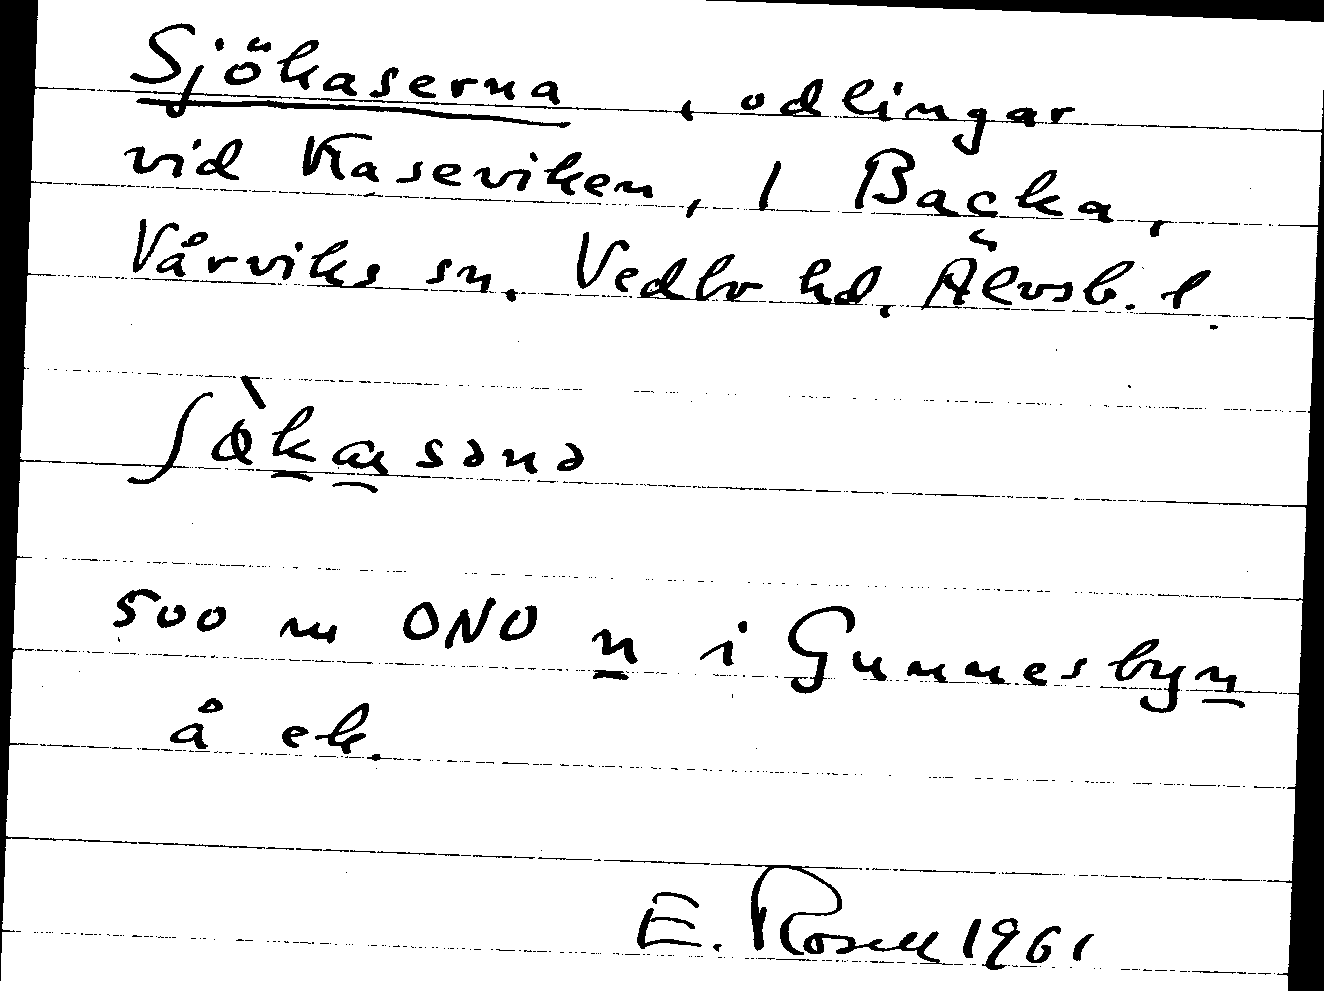 Sjökaserna, odlingar
vid Kaseviken, 1 Backa,
Vårviks sn. Vedbo hd. Älvsb. l.
500 m ONO n i Gunnesbyn
å ek.
E. Rosell 1961